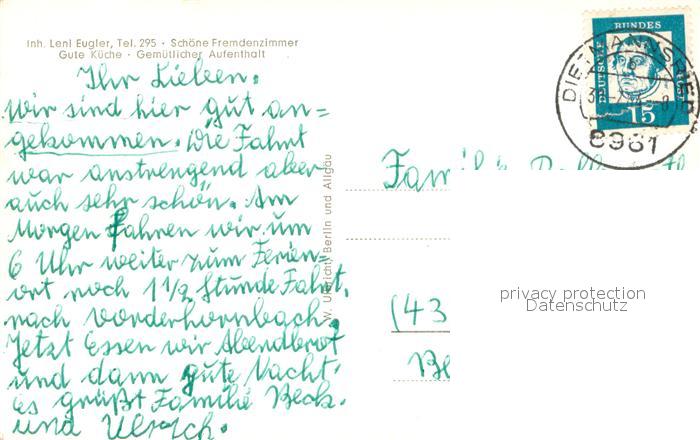 Inh. Leni Eugler, Tel. 295 · Schöne Fremdenzimmer
Gute Küche · Gemütlicher Aufenthalt
Ihr Lieben.
Wir sind hier gut an=
gekommen. Die Fahrt
war anstrengend aber
auch sehr schön. Am
Morgen fahren wir um
6 Uhr weiter zum Ferien-
ort noch 1 1/2 Stunde Fahrt.
nach Vorderhornbach.
Jetzt Essen wir Abendbrot
und dann gute Nacht
Es grüßt Familie Beck.
und
W. Ulbricht, Berlin und Allgäu
(43
Be
DEUTSCHE BUNDESPOST
15
DIETMANNSRIED
8961
privacy protection
Datenschutz